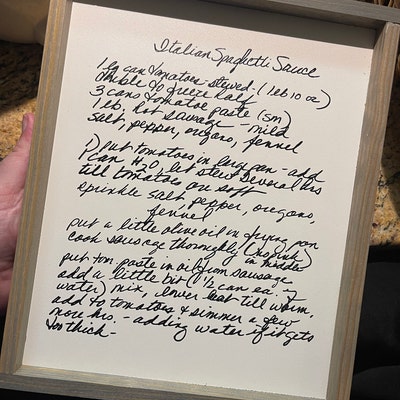 Italian Spaghetti Sauce
1 lg can tomatoes - stewed - (1 lb 10 oz)
double to freeze half
3 cans tomatoe paste (sm)
1 lb. hot sausage - mild
salt, pepper, oregano, fennel
1) put tomatoes in large pan - add
1 can H2O, let stew several hrs
till tomatoes are soft
sprinkle salt, pepper, oregano,
fennel
put a little olive oil in frying pan
cook sausage thoroughly (no pink)
in middle
put tom. paste in oil from sausage
add a little bit (1/2 can ea. of
water) mix, lower heat till warm,
add to tomatoes & simmer a few
more hrs. - adding water if it gets
too thick -